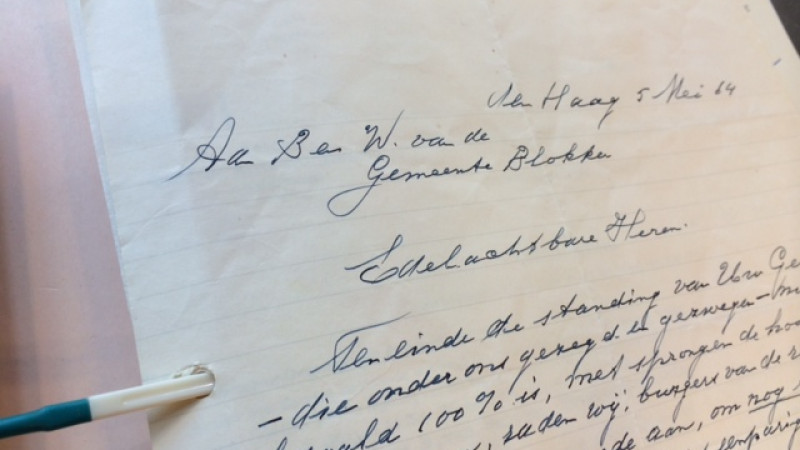 Den Haag 5 Mei 64
Aan B en W. van de
Gemeente Blokker
Edelachtbare Heren.
Ten einde de standing van Uw Ge
– die onder ons gezegd en gezwegen – 
100% is, met sprongen de hoo
raden wij, burgers van de
de aan, om nog